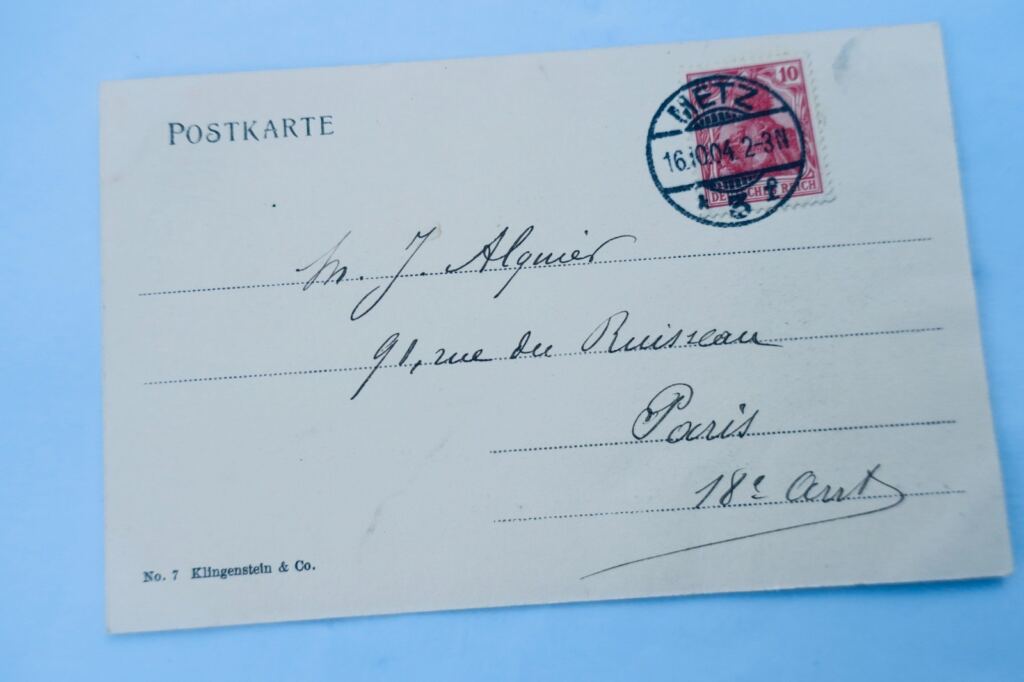 POSTKARTE
10
METZ
16.10.04. 2-3N
3
DEUTSCHES REICH
M. J. Alquier
91, rue du Ruisseau
Paris
18e Arrt
No. 7 Klingenstein & Co.